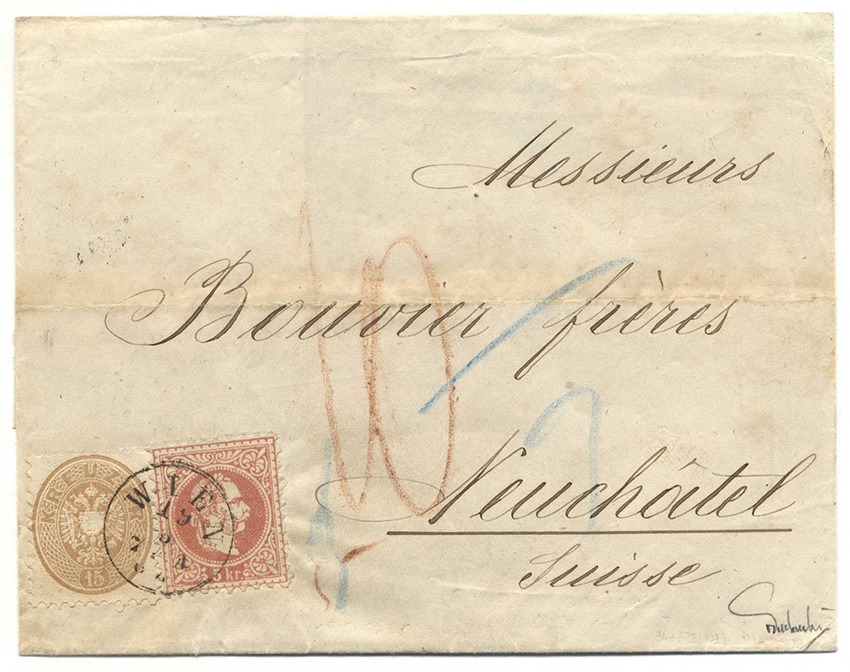 Messieurs
Bouvier frères
Neuchâtel
Suisse
10
KREUZ
15
WIEN
5 Kr.